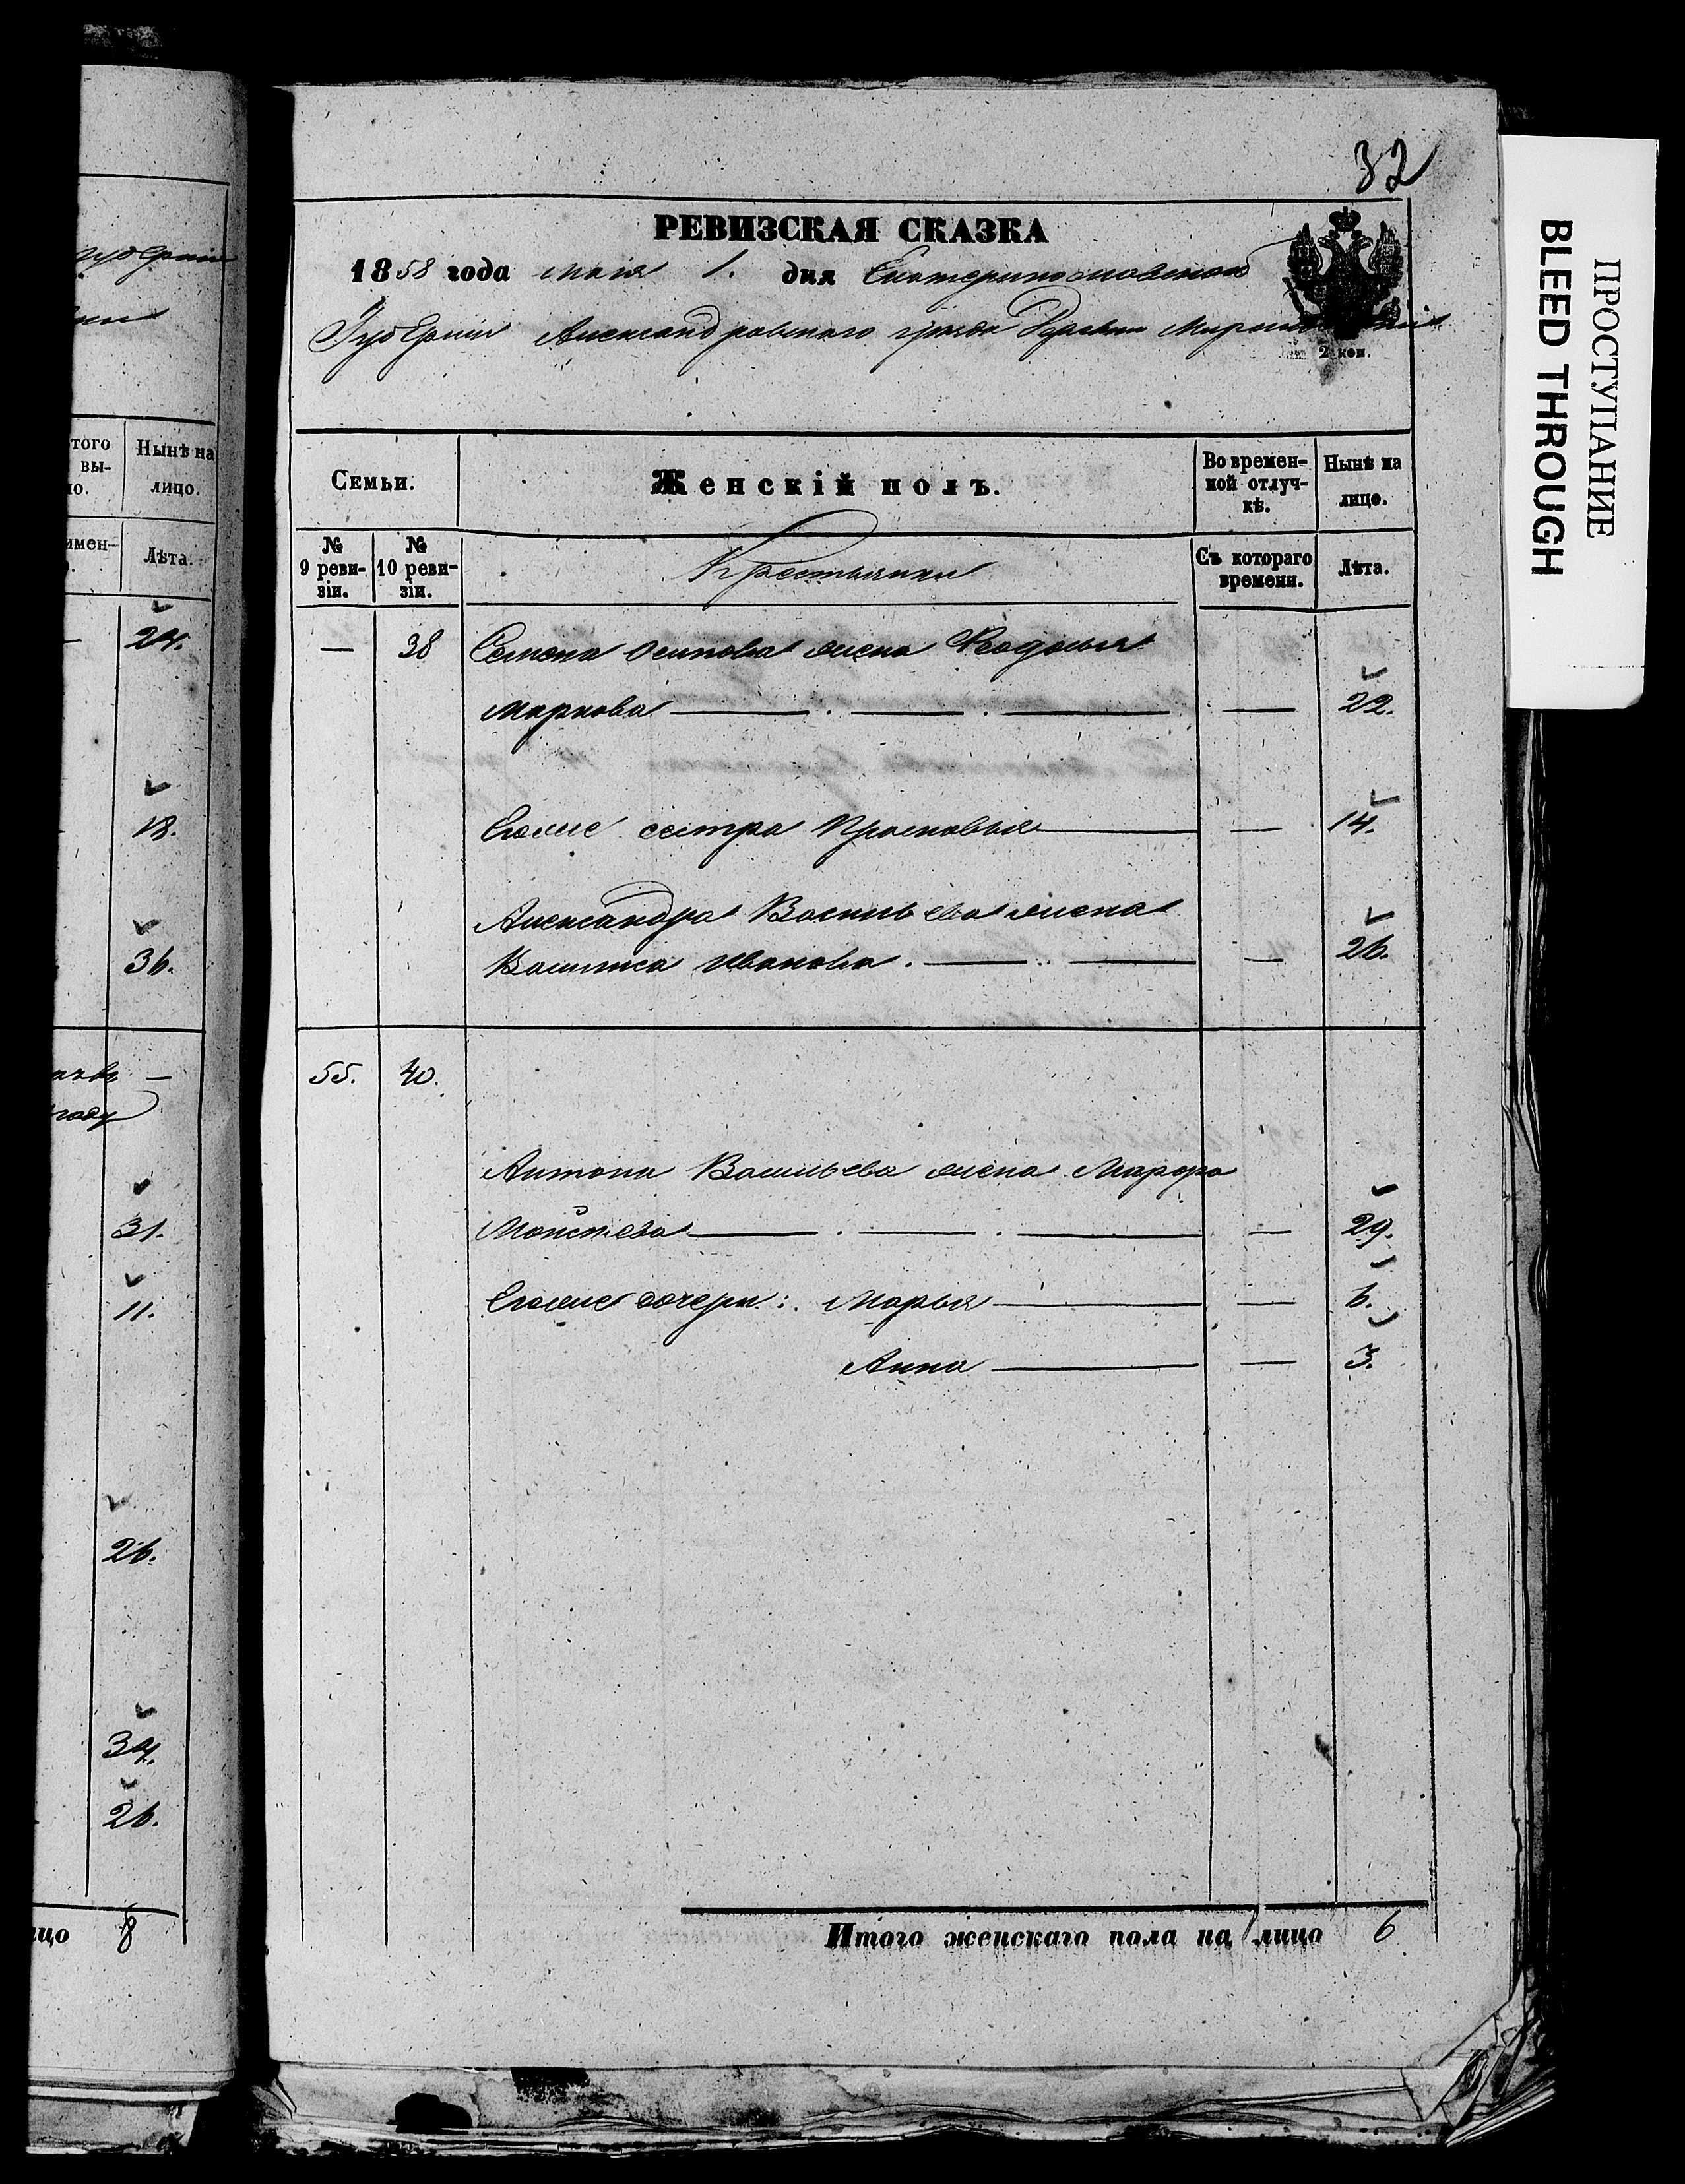 губерніи
того
вы-
Нынѣ на
лицо.
Лѣта.
24.
18.
36.
году
31.
11.
26.
34.
26.
8
32
РЕВИЗСКАЯ СКАЗКА
1858 года маія 1. дня Екатеринославской
Губерніи Александровскаго уѣзда
2 коп.
Семьи.
Женскій полъ.
Во времен-
ной отлуч-
кѣ.
Нынѣ на
лицо.
№
9 реви-
зіи.
№
10 реви-
зіи.
Крестьянки
Съ котораго
времени.
Лѣта.
— 38 Семена Осипова жена Ѳеодосья
Маркова — . — . — — 22.
Егоже сестра Прасковья — — 14.
Александра Васильева жена
Василиса Иванова . — .. — — 26.
55. 40.
Антона Васильева жена Марфа
Моисеева — . — . — — 29.
Егоже дочери: Марья — — 6.
Анна — — 3.
Итого женскаго пола на лицо 6
ПРОСТУПАНИЕ
BLEED THROUGH